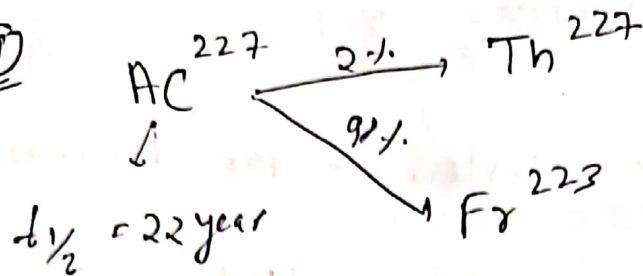 1)
AC^227 2% Th^227
98% Fr^223
t1/2 = 22 year